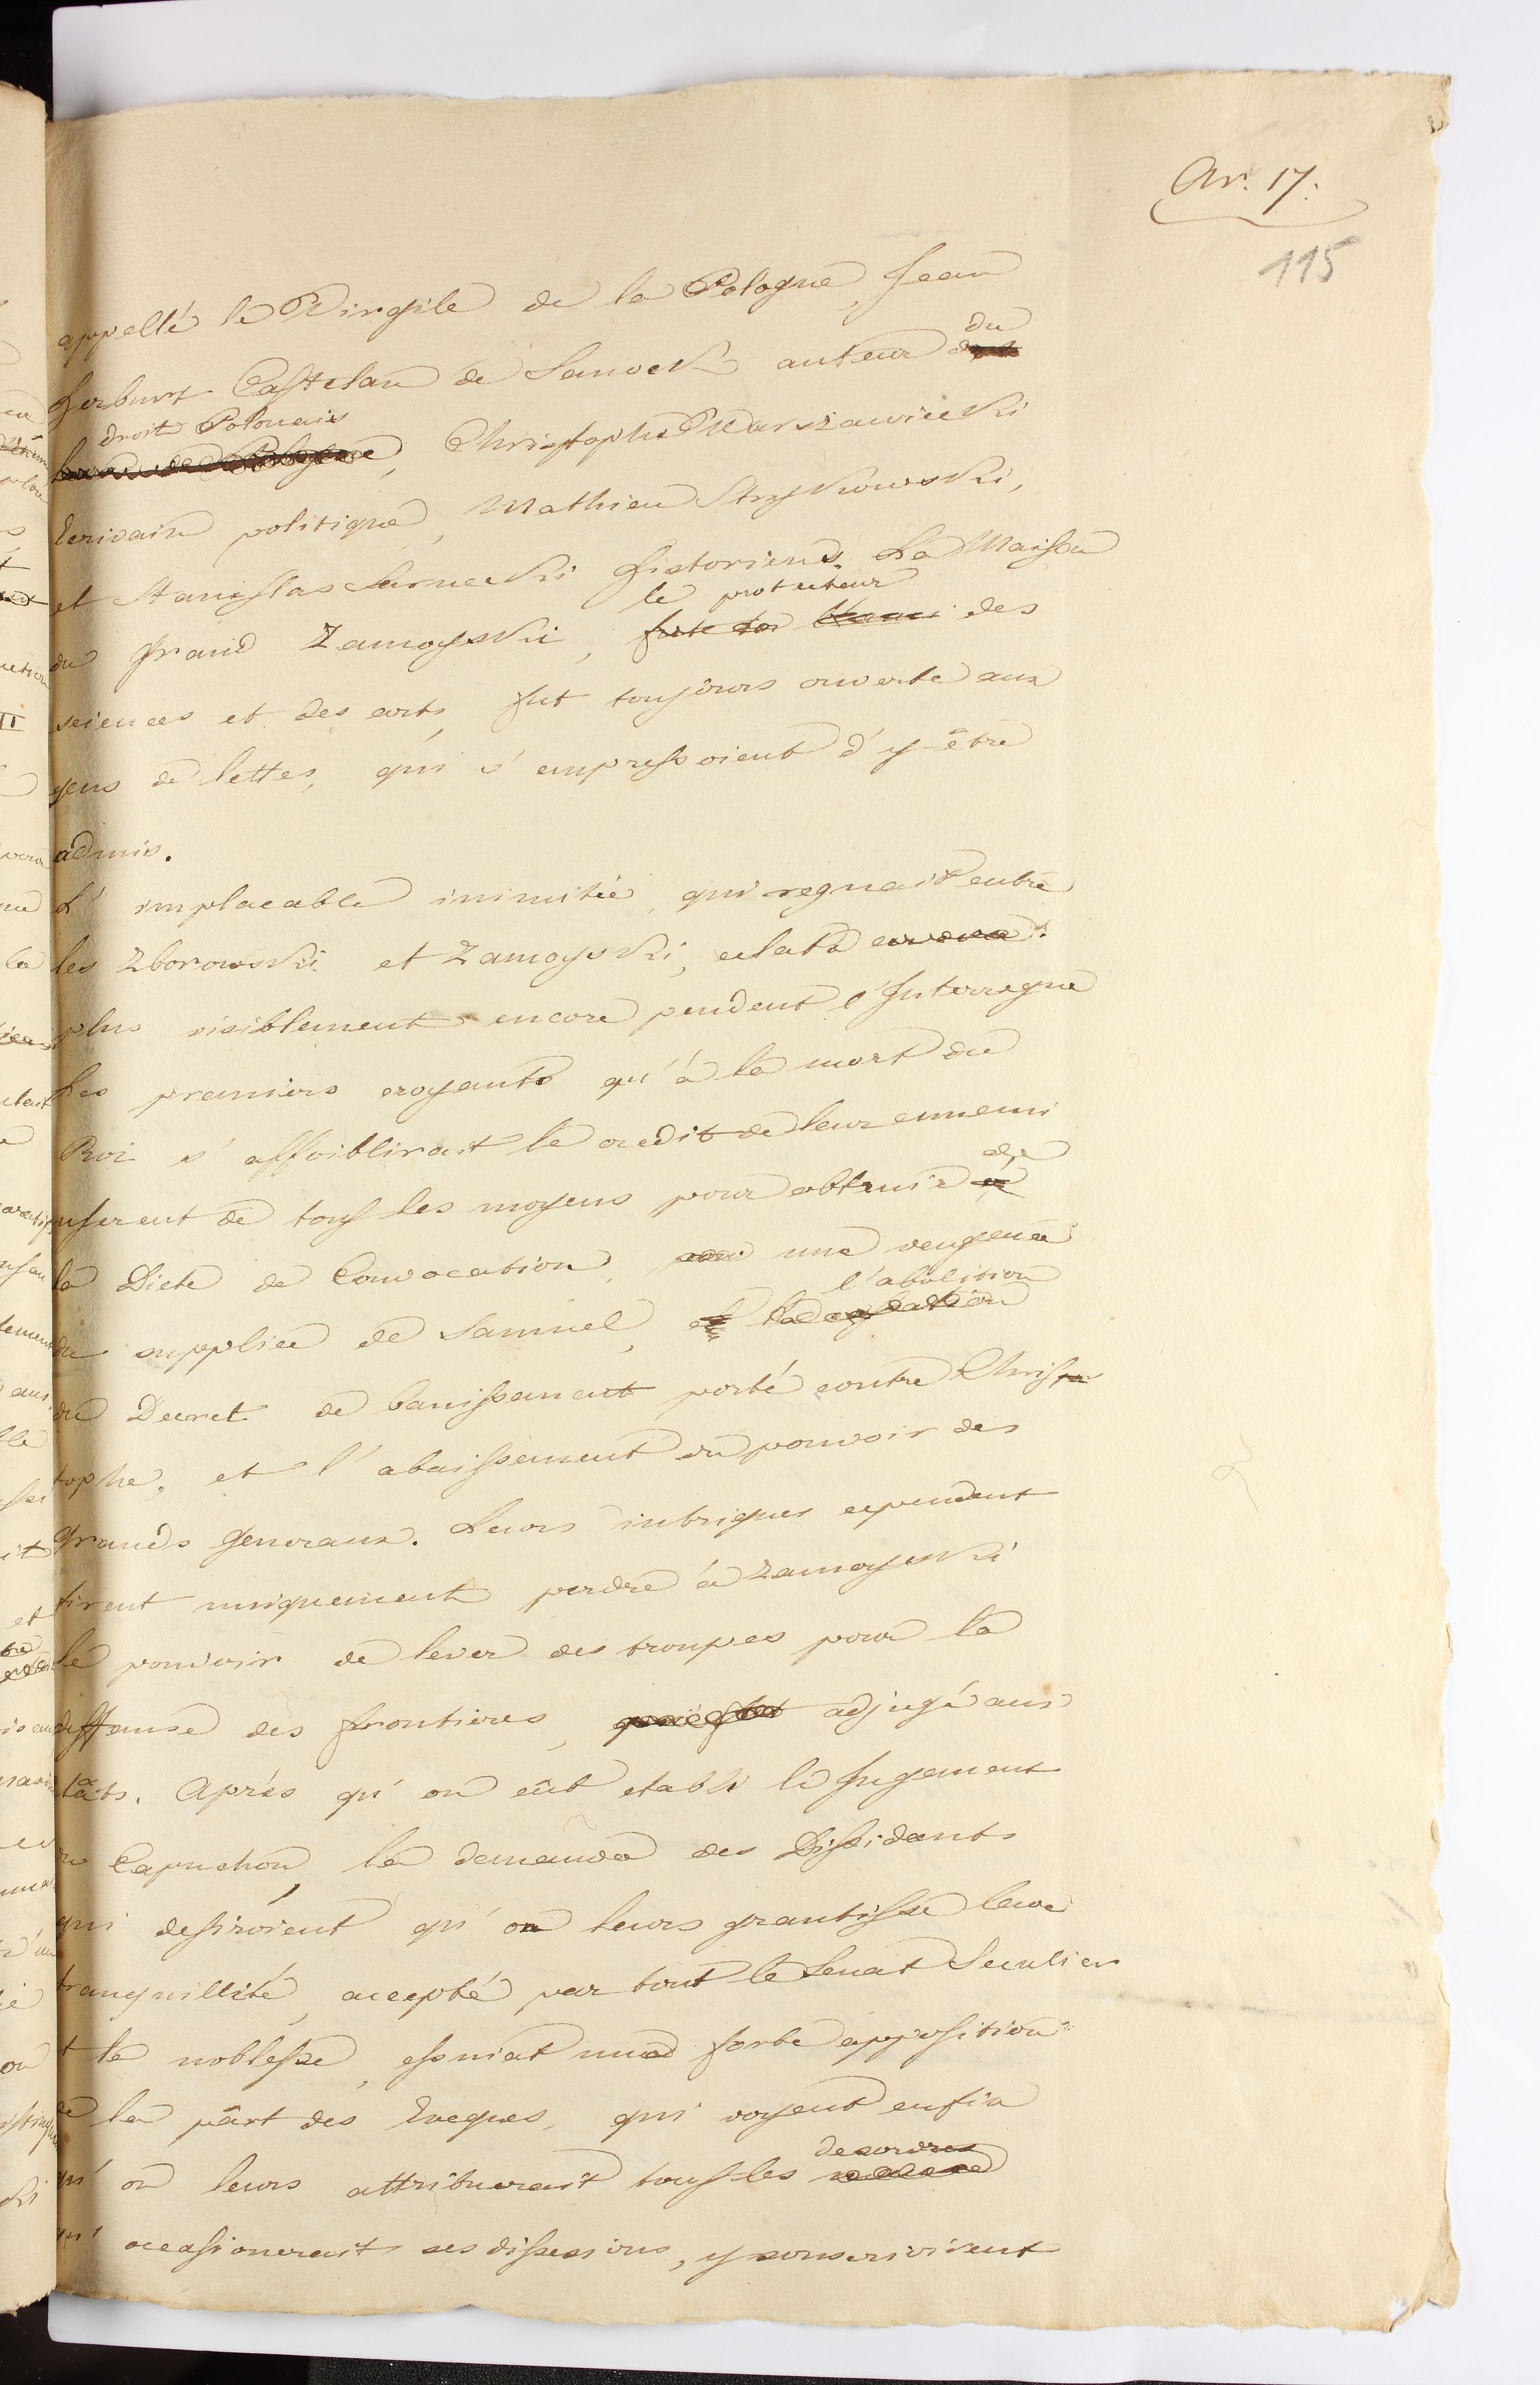 Ar. 17.
115
appellé le Virgile de la Pologne, Jean
du
Herburt Castelan de Sanock auteur
droit Polonais
, Christophe Warszawicki
Ecrivain politique, Mathieu Strykowski,
et Stanislas Sarnecki Historiens. La Maison
le protecteur
du grand Zamoyski, des
sciences et des arts, fut toujours ouverte aux
gens de lettes, qui s'empressoient d'y être
admis.
L'implacable inimitée, qui regnait entre
les Zborowski et Zamoyski, eclata
plus visiblement encore pendent l'Interregne
Les premiers croyants qu'à la mort du
Roi s'affoiblirait le credit de leur ennemi
userent de tous les moyens pour obtenir
la Diete de Convocation, une vengence
l'abolition
du supplice de Samuel,
du Decret de banissement porté contre Chris
tophe, et l'abaissement du pouvoir des
grands Generaux. Leurs intrigues cependent
firent uniquement perdre à Zamoyski
le pouvoir de lever des troupes pour la
deffense des frontieres, adjugé aux
Etats. Aprés qu'on eût etabli le Jugement
du Capuchon, la demande des Dissidants
qui desiroient qu'on leurs grantisse leur
tranquillité, accepté par tout le Senat Seculier
et la noblesse, essuiat une forte opposition
de la part des Eveques, qui voyent enfin
desordres
qu'on leurs attribuerait tous les
qu'occasionerait ses dissesions, y souscrivirent